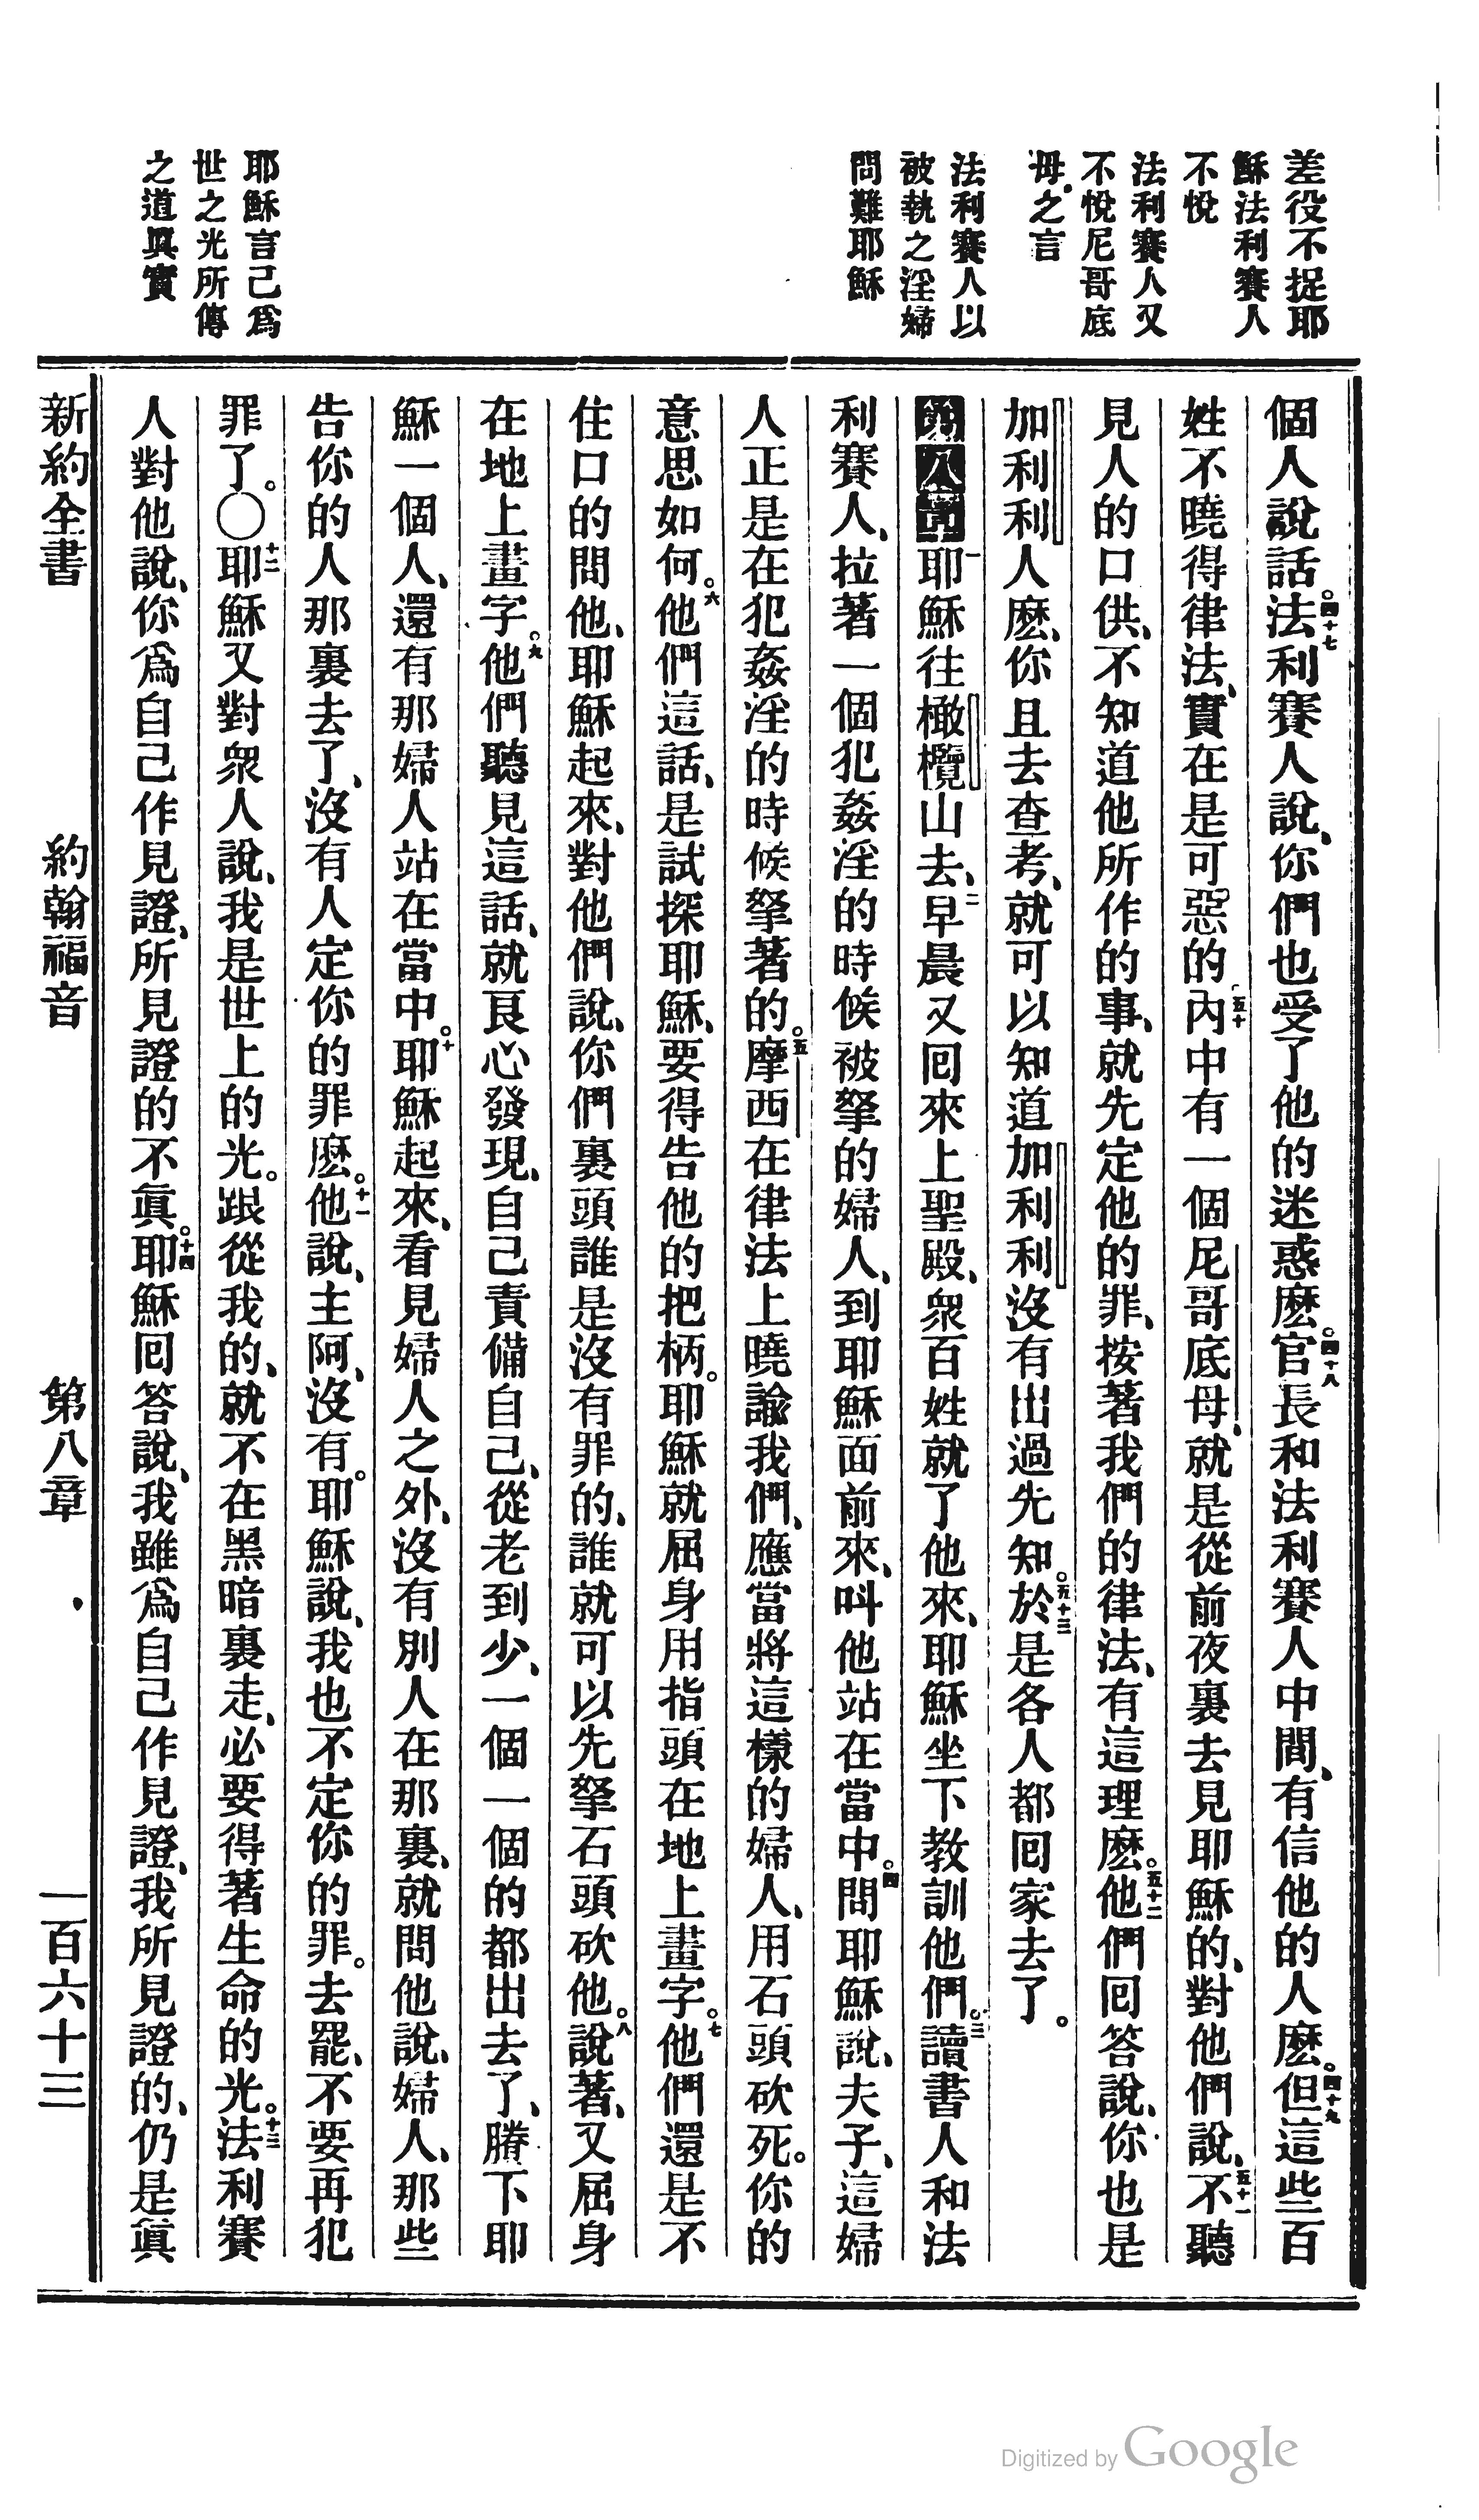 差役不捉耶
穌法利賽人
不悅
法利賽人又
不悅尼哥底
母之言
法利賽人以
被執之淫婦
問難耶穌
耶穌言己爲
世之光所傳
之道眞實
個人說話。四十七法利賽人說、你們也受了他的迷惑麽。四十八官長和法利賽人中間、有信他的人麽。四十九但這些百
姓不曉得律法、實在是可惡的。五十內中有一個尼哥底母、就是從前夜裏去見耶穌的、對他們說、五十一不聽
見人的口供、不知道他所作的事、就先定他的罪、按著我們的律法、有這理麽。五十二他們回答說、你也是
加利利人麽、你且去查考、就可以知道加利利沒有出過先知。五十三於是各人都回家去了。
第八章一耶穌往橄欖山去、二早晨又回來上聖殿、衆百姓就了他來、耶穌坐下教訓他們。三讀書人和法
利賽人、拉著一個犯姦淫的時候被拏的婦人、到耶穌面前來、叫他站在當中。四問耶穌說、夫子、這婦
人正是在犯姦淫的時候拏著的。五摩西在律法上曉諭我們、應當將這樣的婦人、用石頭砍死。你的
意思如何。六他們這話、是試探耶穌、要得告他的把柄。耶穌就屈身用指頭在地上畫字。七他們還是不
住口的問他、耶穌起來、對他們說、你們裏頭誰是沒有罪的、誰就可以先拏石頭砍他。八說著、又屈身
在地上畫字。九他們聽見這話、就良心發現、自己責備自己、從老到少、一個一個的都出去了、賸下耶
穌一個人、還有那婦人站在當中。十耶穌起來、看見婦人之外、沒有別人在那裏、就問他說、婦人、那些
告你的人那裏去了、沒有人定你的罪麽。十一他說、主阿、沒有。耶穌說、我也不定你的罪。去罷、不要再犯
罪了。〇十二耶穌又對衆人說、我是世上的光。跟從我的、就不在黑暗裏走、必要得著生命的光。十三法利賽
人對他說、你爲自己作見證、所見證的不眞。十四耶穌回答說、我雖爲自己作見證、我所見證的、仍是眞
新約全書 約翰福音 第八章 一百六十三
Digitized by Google